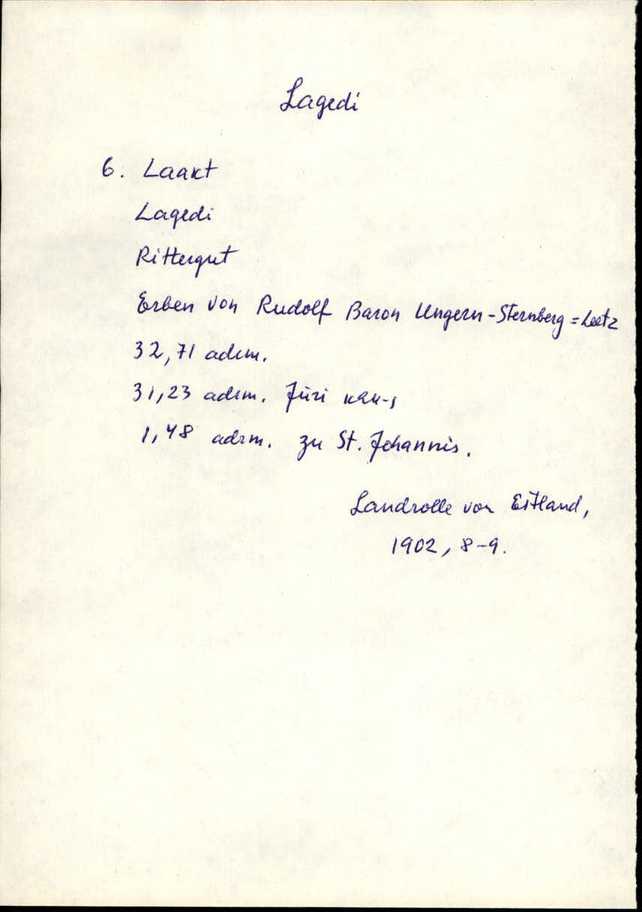 Lagedi
6. Laakt
Lagedi
Rittergut
Erben von Rudolf Baron Ungern-Sternberg=Leetz
32,71 adrm.
31,23 adrm. Jüri khk-s
1,48 adrm. zu St. Johannis.
Landrolle von Estland,
1902, 8-9.